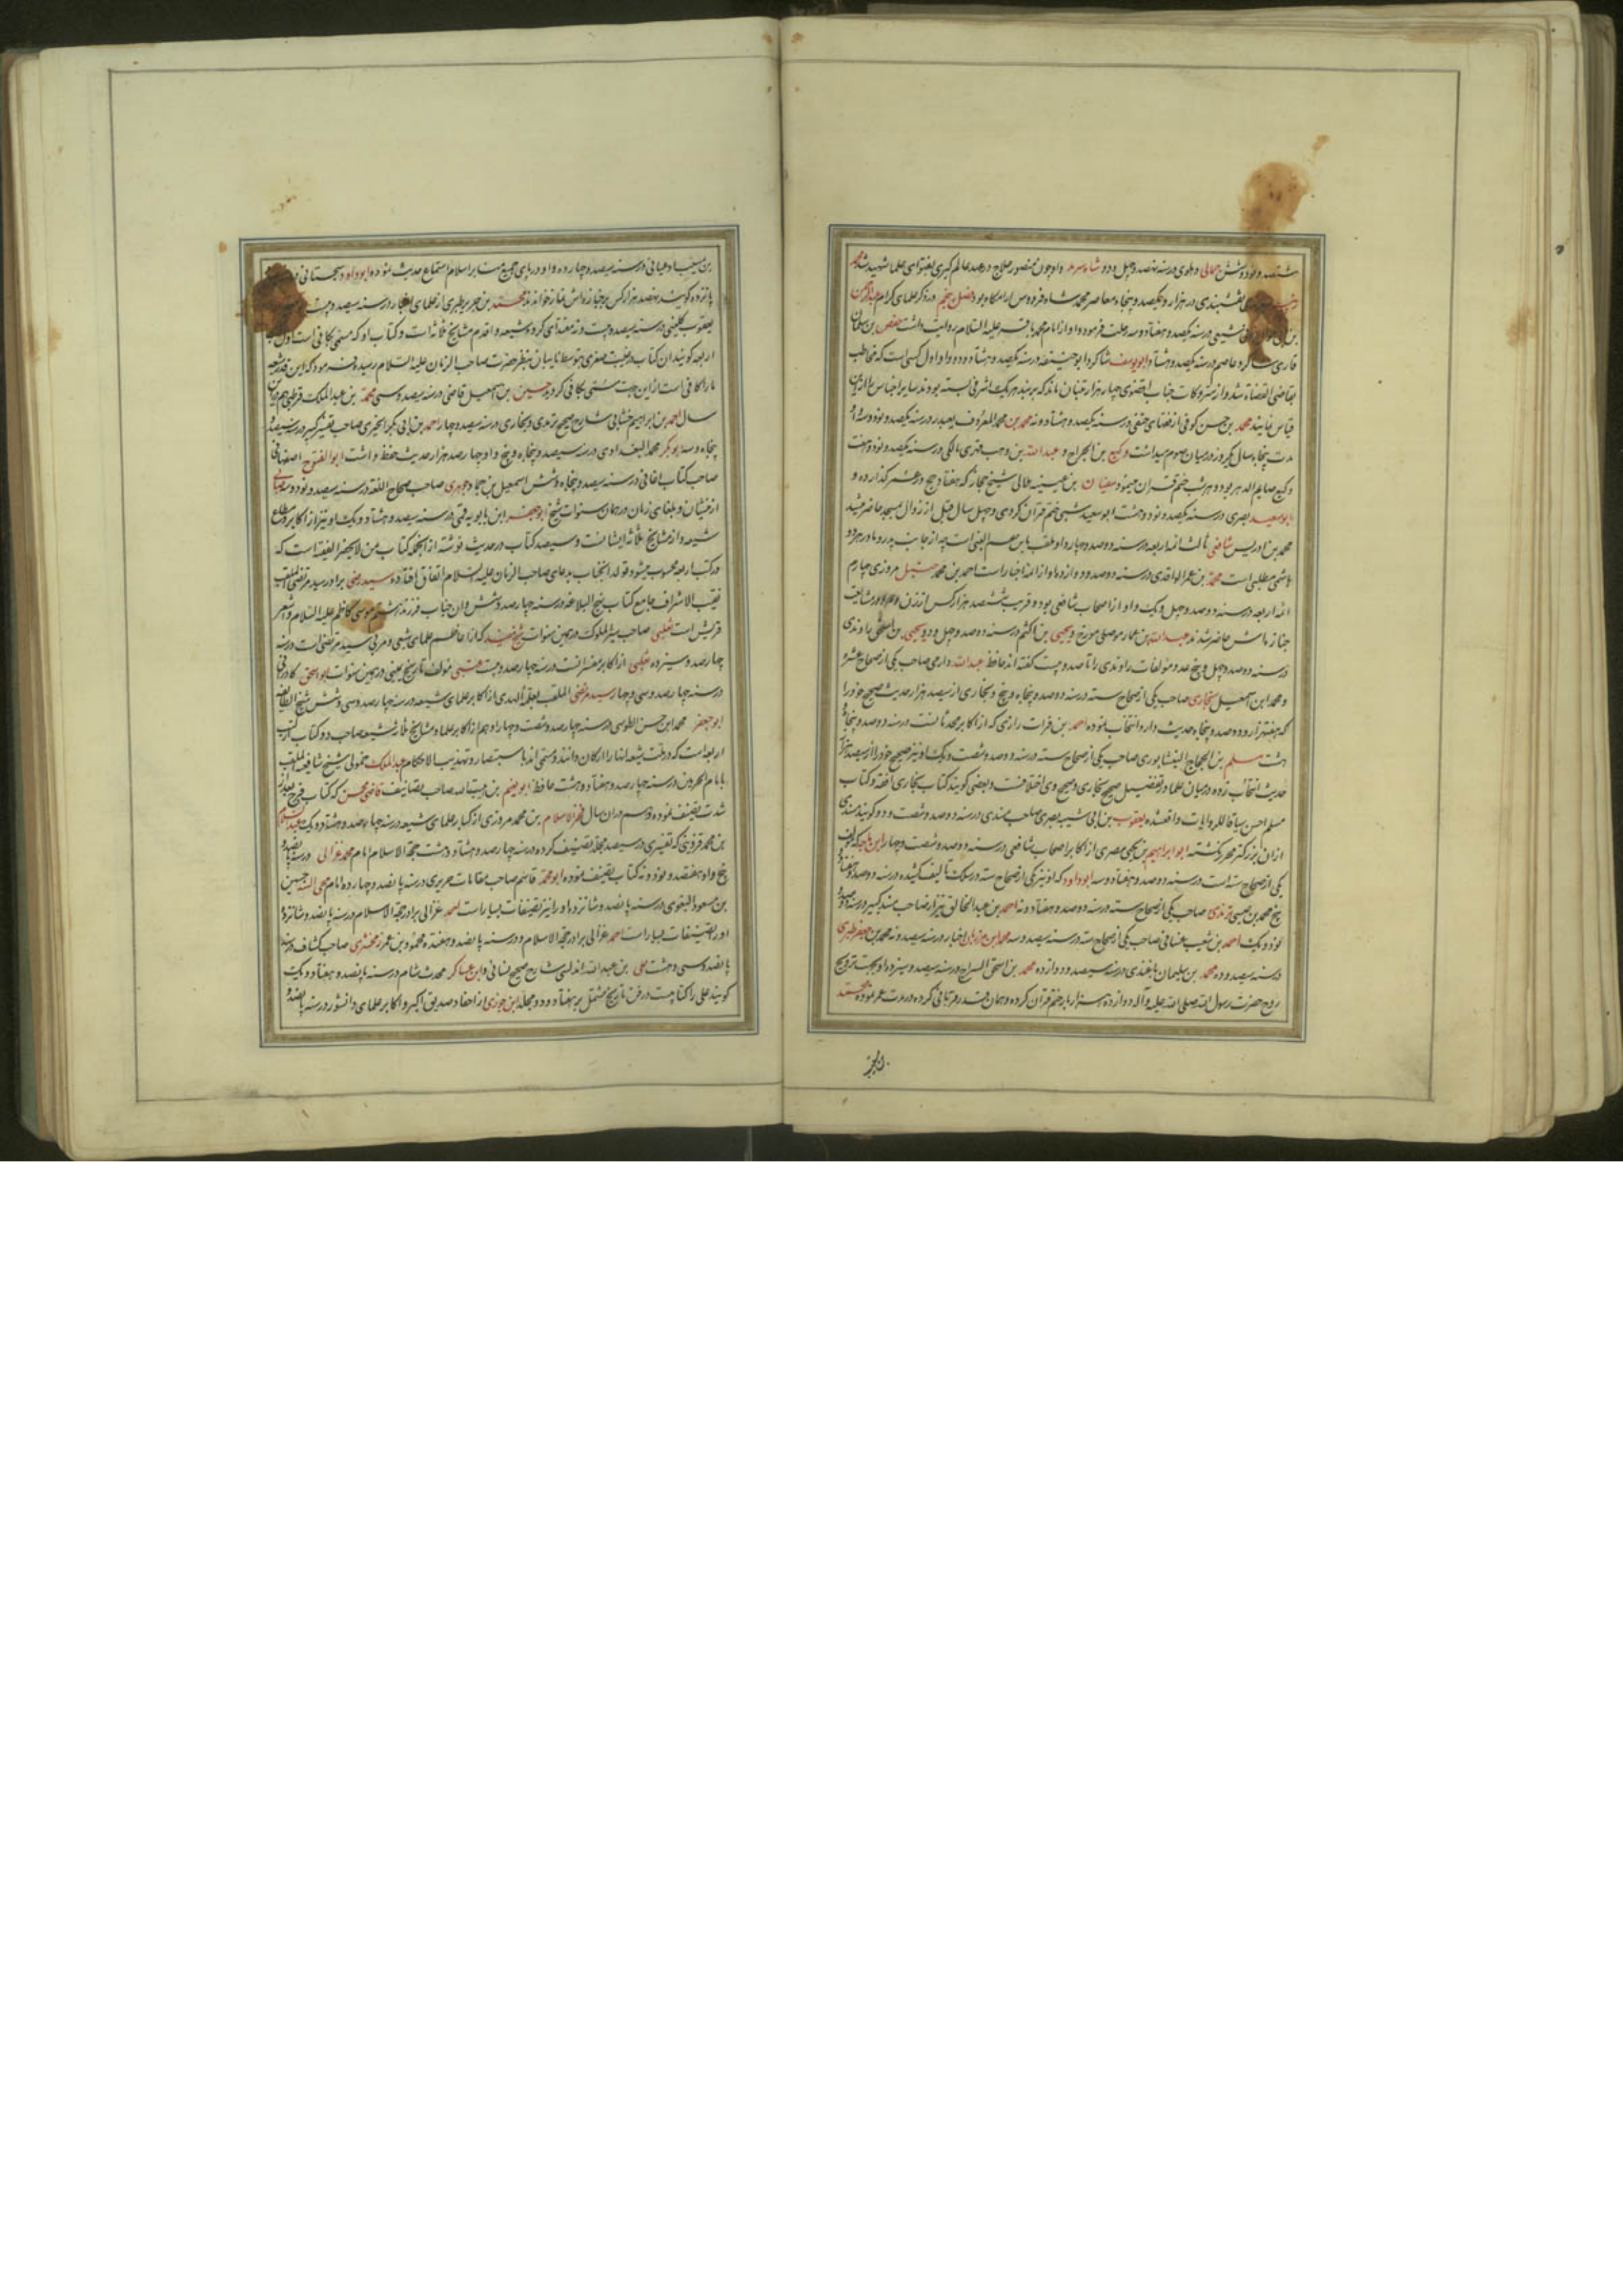 ششصد و نود و شش جمالی دهلوی در سنه نهصد و چهل و دو شاه سرمد و او چون منصور حلاج در عهد عالمگیری بفتوای علما شهید شد
نقشبندی در هزار و یکصد و پنجاه معاصر محمد شاه فردوس آرامگاه بود فصل پنجم در ذکر علمای کرام عبدالرحمن
شیعی در سنه یکصد و هفتاد و سه رحلت فرموده و او از امام محمد باقر علیه السلام روایت داشت حفص بن سلیمان
قاری شاگرد عاصم در سنه یکصد و هشتاد ابو یوسف شاگرد ابو حنیفه در سنه یکصد و هشتاد و دو و او اول کسی است که مخاطب
بقاضی القضاة شد و از متروکات جناب اقضوی چهار هزار تنبان ماند که بر بند هر یک اشرفی بسته بودند سایر اجناس علی
قیاس نمایند محمد بن حسن کوفی از فقهای حنفی در سنه یکصد و هشتاد و نه محمد بن محمد المعروف در سنه یکصد و نود و سه او
مدت پنجاه سال یکروز در میان صوم میداشت وکیع بن الجراح و عبدالله بن وهب فهری مالکی در سنه یکصد و نود و هفت
وکیع صایم الدهر بود و هر شب ختم قرآن مینمود سفیان بن عیینه هلالی شیخ حجاز که هفتاد حج در عمر گذارده و
ابو سعید بصری در سنه یکصد و نود و هشت ابو سعید شبی ختم قرآن کردی و چهل سال قبل از زوال مسجد حاضر میشد
محمد بن ادریس شافعی ثالث ائمه اربعه در سنه دو صد و چهار و او ملقب بابن عم النبی است چه از جانب پدر و مادر هر دو
هاشمی مطلبی است محمد بن عمر الواقدی در سنه دو صد و دوازده او از ائمه اخبار است احمد بن محمد حنبل مروزی چهارم
ائمه اربعه در سنه دو صد و چهل و یک و او از اصحاب شافعی بود و قریب ششصد هزار کس از زن و مرد در مشایعت
جنازه‌اش حاضر شدند عبدالله بن عمار موصلی مورخ و یحیی بن اکثم در سنه دو صد و چهل و دو یحیی بن اسحق راوندی
در سنه دو صد و چهل و پنج عدد مؤلفات راوندی را تا صد و بیست گفته‌اند حافظ عبدالله دارمی صاحب یکی از صحاح عشره
و محمد ابن اسمعیل بخاری صاحب یکی از صحاح سته در سنه دو صد و پنجاه و پنج و بخاری از سیصد هزار حدیث صحیح خود را
که هفت هزار و دو صد و پنجاه حدیث دارد انتخاب نموده احمد بن فرات رازی که از اکابر محدثانست در سنه دو صد و پنجاه
هشت مسلم بن الحجاج النیشابوری صاحب یکی از صحاح سته در سنه دو صد و شصت و یک او نیز صحیح خود را از سیصد هزار
حدیث انتخاب زده در میان علما در تفضیل صحیح بخاری و صحیح وی اختلافست و بعضی گویند کتاب بخاری افقه و کتاب
مسلم احسن سیاقا للروایات واقعشده یعقوب بن ابی شیبه بصری صاحب مسندی در سنه دو صد و شصت و دو گویند مسندی
از آن بزرگتر بظهور نگشته ابو ابراهیم بن یحیی مصری از اکابر اصحاب شافعی در سنه دو صد و شصت و چهار ابن ماجه که
یکی از صحاح سته است در سنه دو صد و هفتاد و سه ابو داود که او نیز یکی از صحاح سته در سلک تالیف کشیده در سنه دو صد و هفتاد
پنج محمد بن عیسی ترمذی صاحب یکی از صحاح سته در سنه دو صد و هفتاد و نه احمد بن عبد الخالق بزار صاحب مسند کبیر در سنه دو صد
نود و یک احمد بن شعیب نسائی صاحب یکی از صحاح سته در سنه سیصد و سه محمد ابن مرزبان اخبار در سنه سیصد و نه محمد بن جعفر طبری
در سنه سیصد و ده محمد بن سلیمان باغندی در سنه سیصد و دوازده محمد بن اسحق السراج در سنه سیصد و سیزده او بجهت ترویح
روح حضرت رسول الله صلی الله علیه و آله دوازده هزار بار ختم قرآن کرده و همان قدر قربانی کرده در مدت عمر نموده محمد
بن المخ
در سنه سیصد و چارده و او در پای جمیع منابر اسلام استماع حدیث نموده ابو داود سجستانی
پانزده گویند سیصد هزار کس بر جنازه‌اش نماز خوانده‌اند محمد بن جریر طبری از علمای اخبار در سنه سیصد و
یعقوب کلینی در سنه سیصد و بیست و نه مقتدای گروه شیعه و اقدم مشایخ ثلاثه است و کتاب او که مسمی بکافی است اول
اربعه گویند آن کتاب در غیبت صغری بتوسط نایبان بنظر حضرت صاحب الزمان علیه السلام رسیده فرمود که این قدر شیعه
ما را کافی است از این جهت مسمی بکافی گردید حسین بن اسمعیل قاضی در سنه سیصد و سی محمد بن عبد الملک قرطبی هم درین
سال احمد بن ابراهیم خطابی شارح صحیح ترمذی و بخاری در سنه سیصد و چهار احمد بن ابی بکر الحیری صاحب تفسیر کبیر در سنه سیصد
پنجاه و سه ابو بکر محمد البغدادی در سنه سیصد و پنجاه و پنج و او چهار صد هزار حدیث حفظ داشت ابو الفتوح اصفهانی
صاحب کتاب اغانی در سنه سیصد و پنجاه و شش اسمعیل بن حماد جوهری صاحب صحاح اللغه در سنه سیصد و نود و سه صابی
از منشیان و بلغای زمان در همان سنوات شیخ ابو جعفر ابن بابویه قمی در سنه سیصد و هشتاد و یک او نیز از اکابر
شیعه و از مشایخ ثلاثه ایشانست و سیصد کتاب در حدیث نوشته از انجمله کتاب من لا یحضر الفقیه است که
در کتب اربعه محسوب میشود تولد آنجناب بدعای صاحب الزمان علیه السلام اتفاق افتاده سید رضی برادر سید مرتضی ملقب
نقیب الاشراف جامع کتاب نهج البلاغه در سنه چهار صد و شش و آن جناب فرزند ششم موسی کاظم علیه السلام و اشعر
قریش است ثعلبی صاحب سیر الملوک در همین سنوات شیخ مفید که از اعاظم علمای شیعی و مربی سید مرتضی است در سنه
چهار صد و سیزده عکبی از اکابر مفسرانست در سنه چهار صد و بیست عتبی مؤلف تاریخ یمینی در همین سنوات ابو اسحق کازرونی
در سنه چهار صد و سی و چهار سید مرتضی الملقب بعلم الهدی از اکابر علمای شیعه در سنه چهار صد و سی و شش شیخ الطایفه
ابو جعفر محمد ابن حسن الطوسی در سنه چهار صد و شصت و چهار او هم از اکابر علما و مشایخ ثلاثه شیعه صاحب دو کتاب از کتب
اربعه است که در ملت شیعه آنها را ارکان دانند و مسمی‌اند باستبصار و تهذیب الاحکام عبد الملک شیخ شافعیه الملقب
بامام الحرمین در سنه چهار صد و هفتاد و هشت حافظ ابو نعیم بن هبة الله صاحب تصانیف قاضی محسن که کتاب فرج بعد از
شدت تصنیف نموده و هم در آن سال فخر الاسلام بن محمد مروزی از کبار علمای شیعه در سنه چهار صد و هشتاد و یک عبد السلام
بن محمد قزوینی که تفسیری در سیصد مجلد تصنیف کرده در سنه چهار صد و هشتاد و هشت حجة الاسلام امام محمد غزالی در سنه پانصد و
پنج و او نهصد و نود و نه کتاب تصنیف نموده ابو محمد قاسم صاحب مقامات حریری در سنه پانصد و چهارده امام محی السنه حسین
بن مسعود البغوی در سنه پانصد و شانزده او را نیز تصنیفات بسیار است احمد غزالی برادر حجة الاسلام در سنه پانصد و شانزده
او را تصنیفات بسیار است احمد غزالی برادر حجة الاسلام و در سنه پانصد و هفده محمود بن عمر زمخشری صاحب کشاف در سنه
پانصد و سی و هشت علی بن عبدالله اندلسی شارح صحیح نسائی و ابن عساکر محدث شام در سنه پانصد و هفتاد و یک
گویند علی را کتابیست در فن تاریخ مشتمل بر هفتاد و دو مجلد ابن جوزی از احفاد صدیق اکبر و اکابر علمای دانشور در سنه پانصد